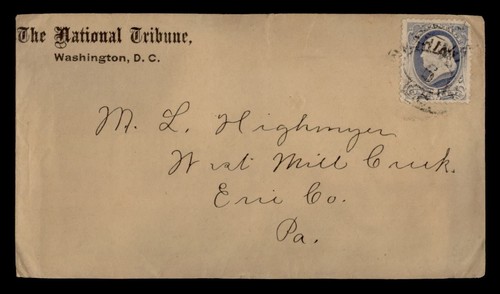 The National Tribune,
Washington, D. C.
M. L. Highmyer
West Mill Creek.
Erie Co.
Pa.